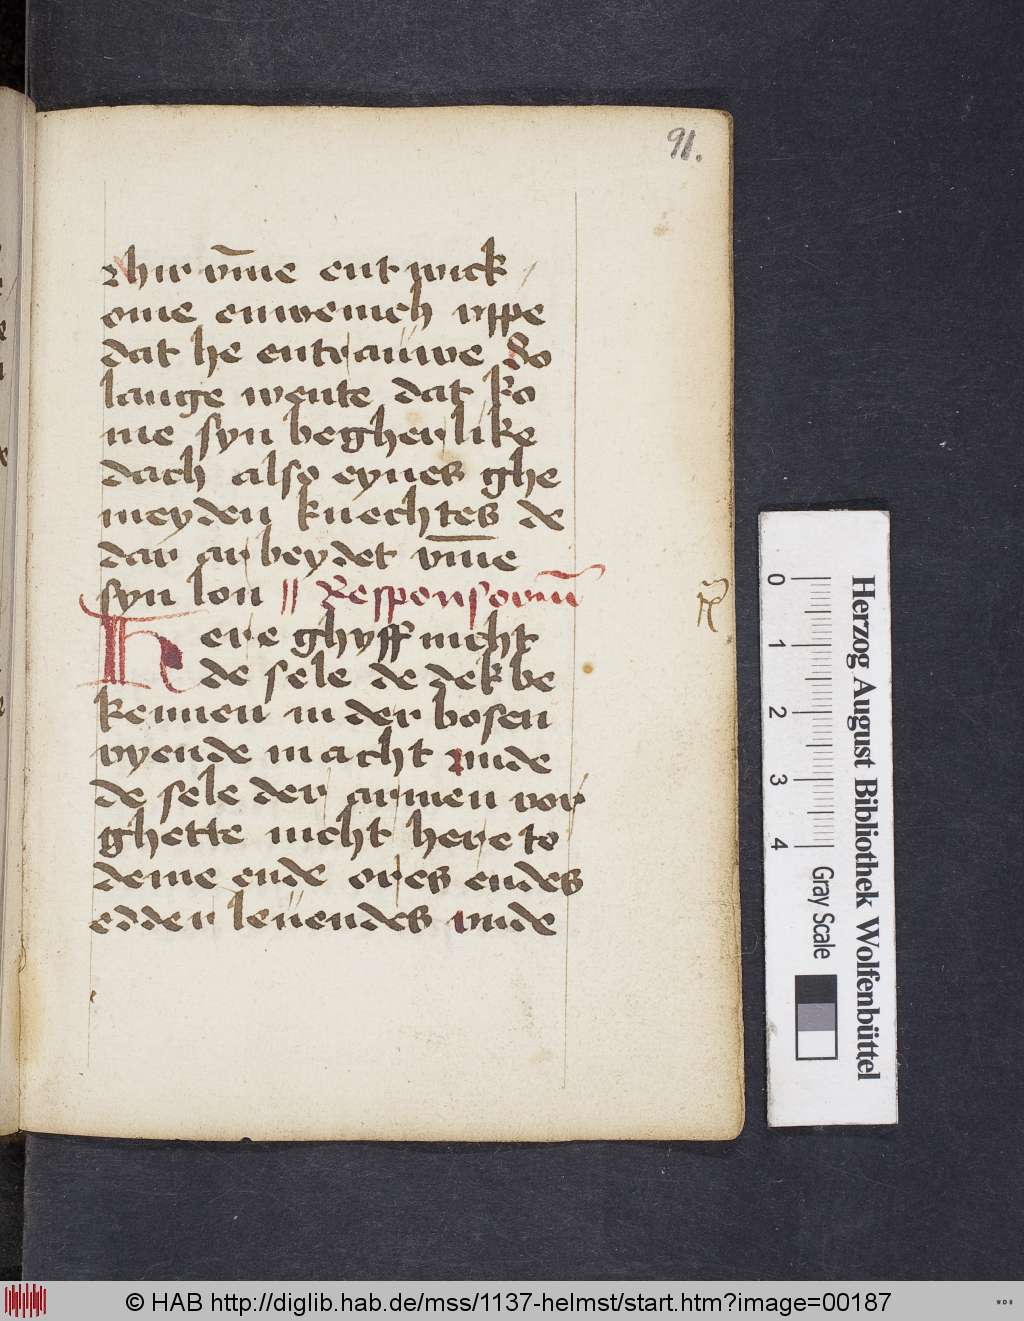 91.
Dhir vm̄e ent wick
eme enwenich vppe
dat he entrauwe do
lange wente dat ko
me syn begherlike
dach also eynes ghe
meyden knechtes de
dar arbeydet vm̄e
syn lon || Responsoriū
Here ghyff nicht
de sele de dek be
kennen in der bosen
vyende macht vnde
de sele der armen vor
ghette nicht here to
deme ende eres endes
edder leuendes vnde
0 1 2 3 4
Gray Scale
Herzog August Bibliothek Wolfenbüttel
© HAB http://diglib.hab.de/mss/1137-helmst/start.htm?image=00187